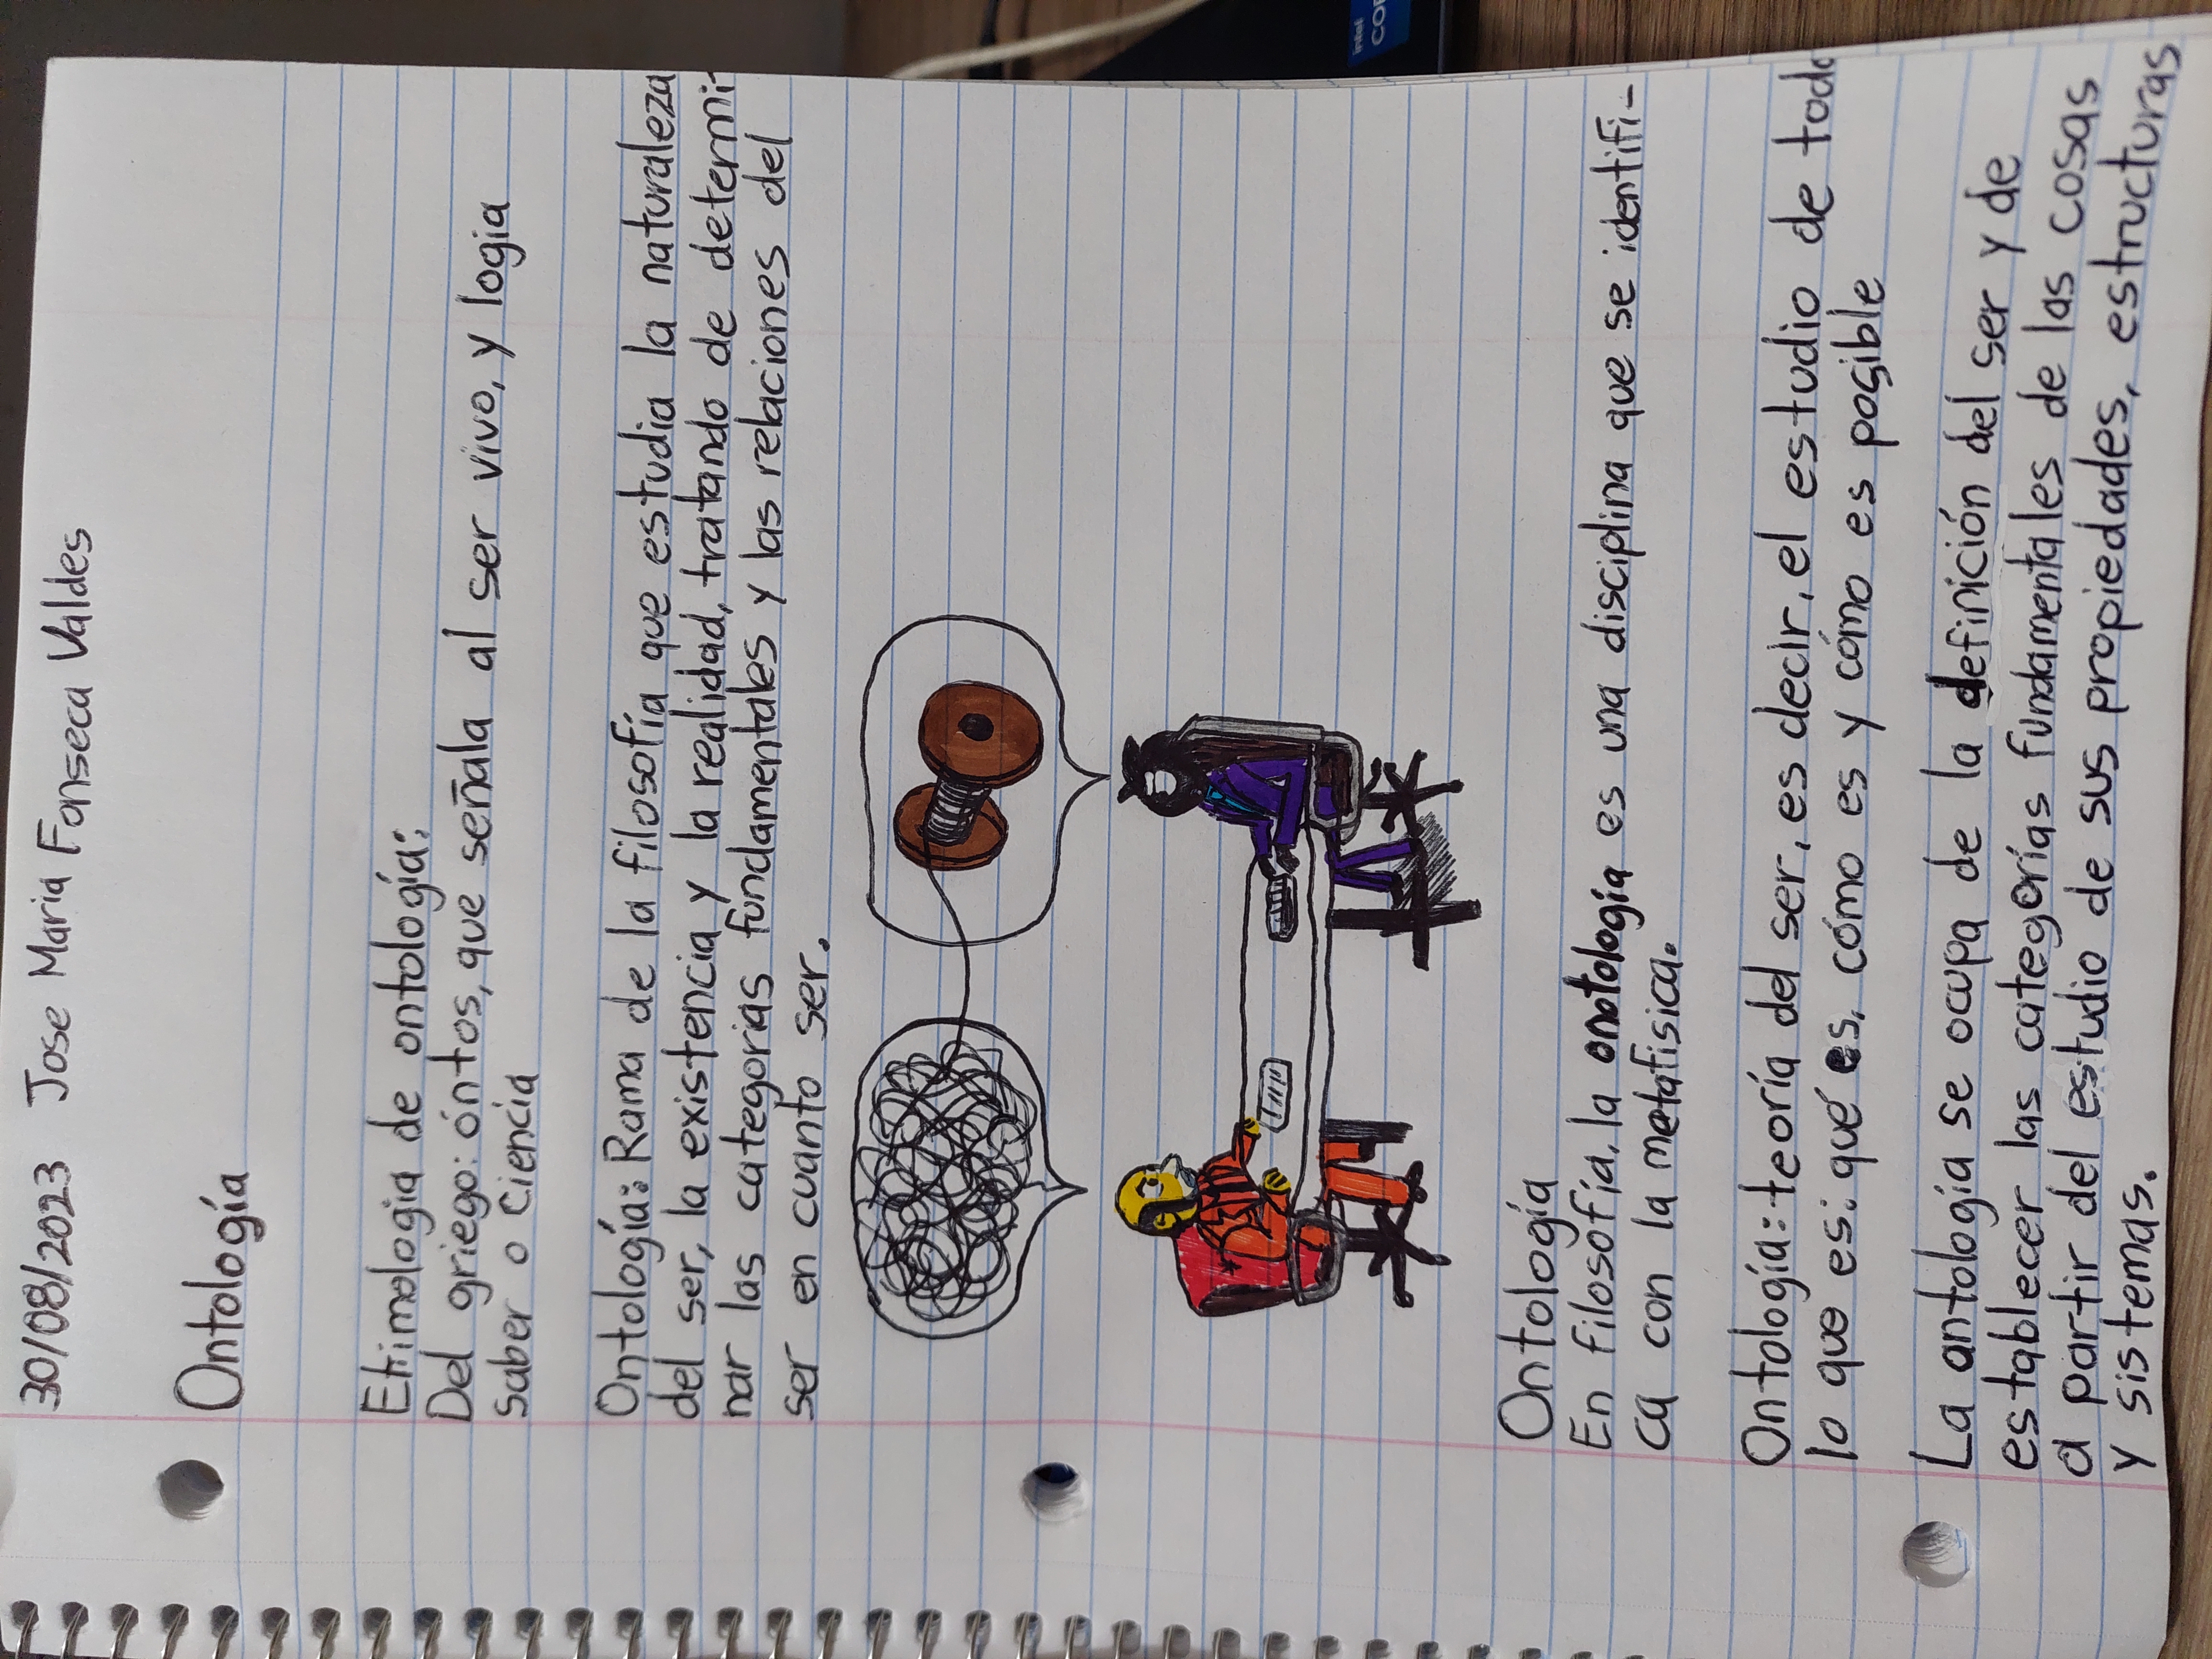 30/08/2023 Jose Maria Fonseca Valdes
Ontología
Etimologia de ontología:
Del griego: óntos, que señala al ser vivo, y logia
saber o ciencia
Ontología: Rama de la filosofía que estudia la naturaleza
del ser, la existencia y la realidad, tratando de determi-
nar las categorias fundamentales y las relaciones del
ser en cuanto ser.
Ontología
En filosofía, la onotología es una disciplina que se identifi-
ca con la metafisica.
Ontología: teoría del ser, es decir, el estudio de todo
lo que es: qué es, cómo es y cómo es posible
La antología se ocupa de la definición del ser y de
establecer las categorías fundamentales de las cosas
a partir del estudio de sus propiedades, estructuras
y sistemas.
intel